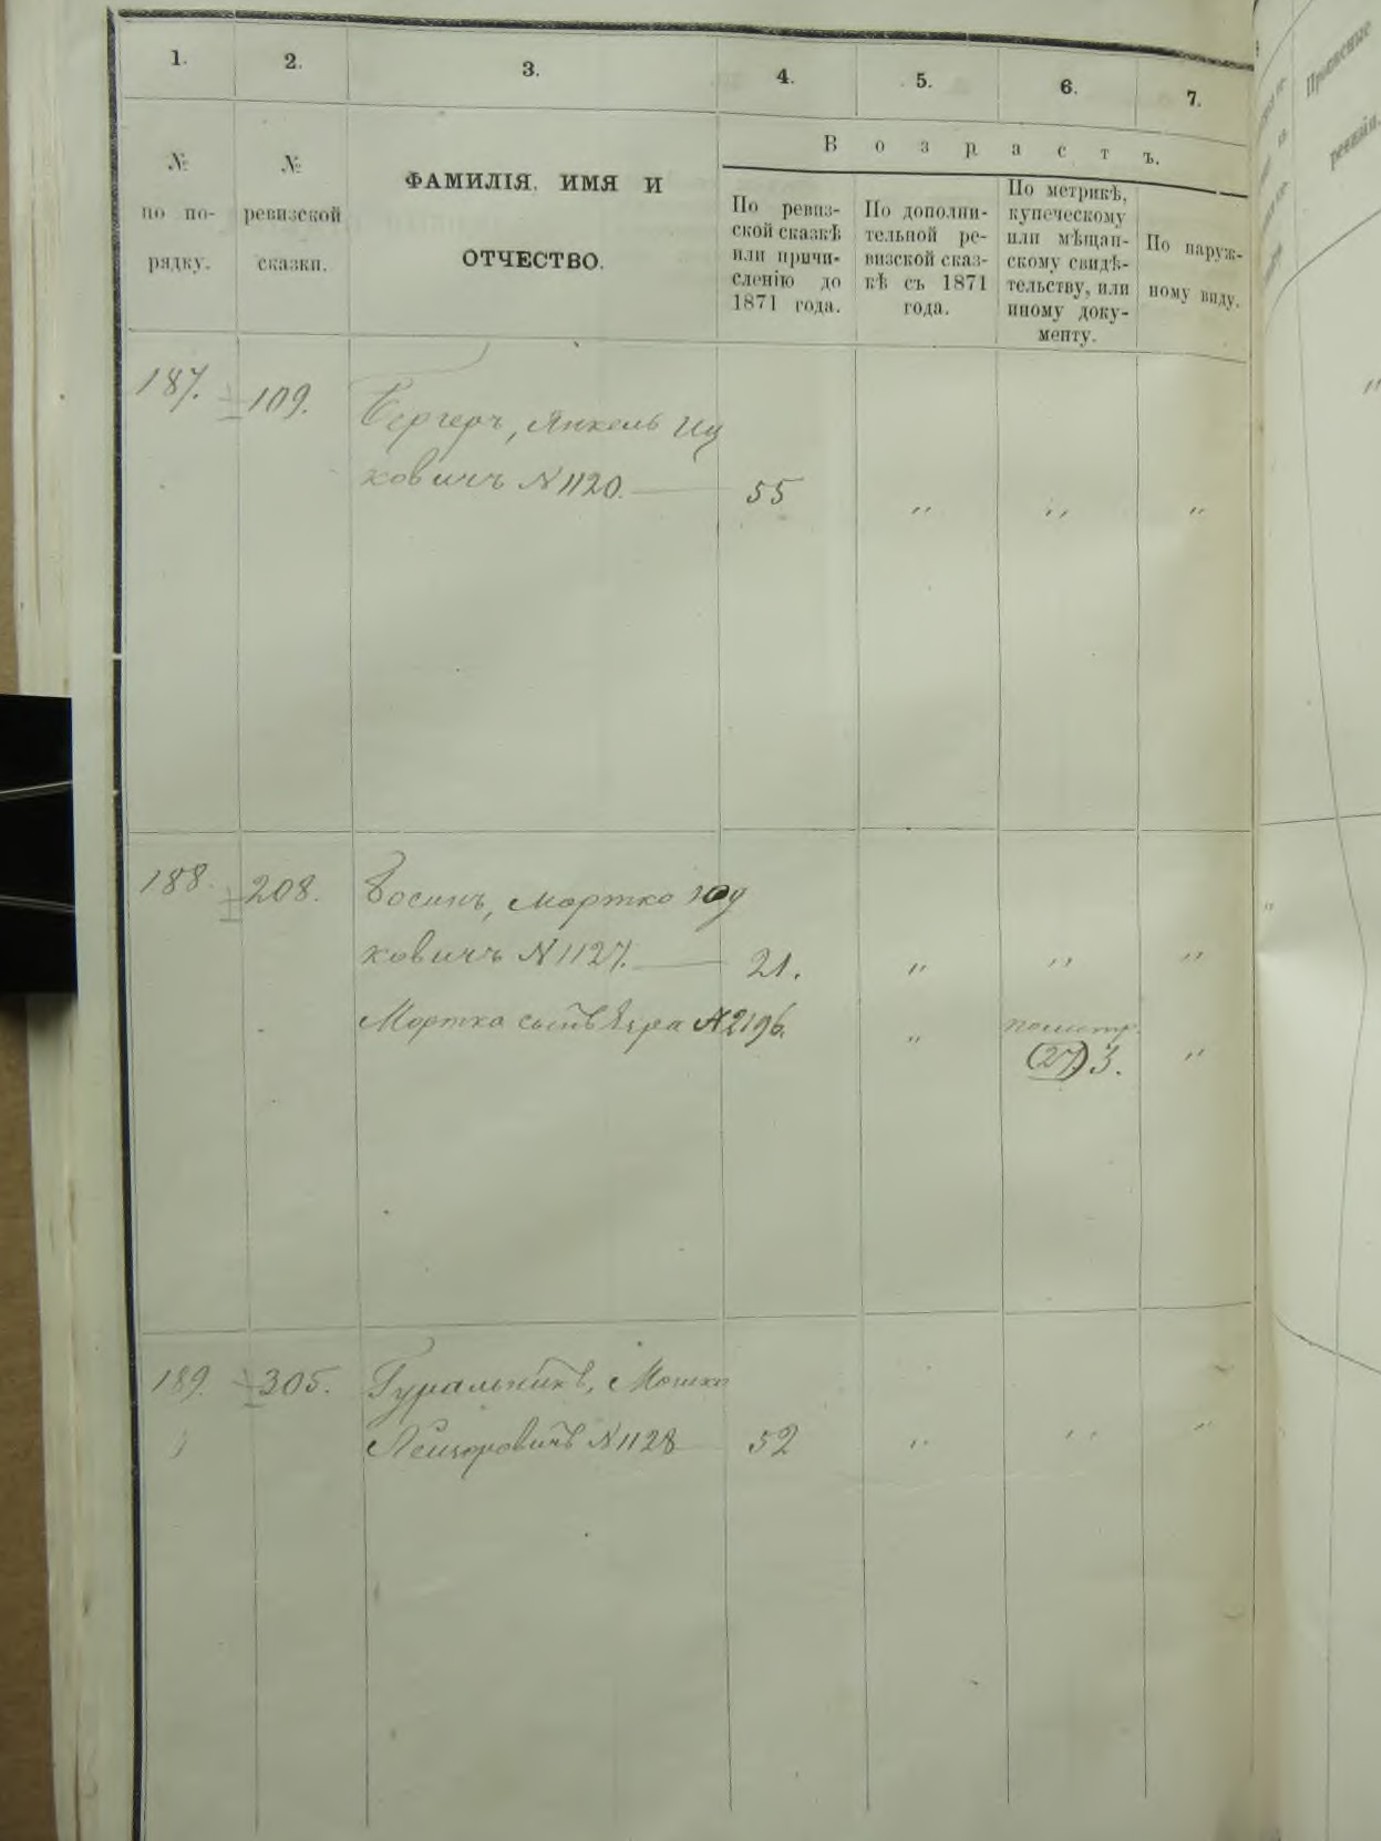 1. 2. 3. 4. 5. 6. 7.
№ по порядку.
№ ревизской сказки.
ФАМИЛІЯ, ИМЯ И
ОТЧЕСТВО.
Возрастъ.
По ревиз-
ской сказкѣ
или причи-
сленію до
1871 года.
По дополни-
тельной ре-
визской сказ-
кѣ съ 1871
года.
По метрикѣ,
купеческому
или мѣщан-
скому свидѣ-
тельству, или
иному доку-
менту.
По наруж-
ному виду.
187. 109. Бергеръ, Янкель Иц
ковичъ № 1120. 55 " " "
188. 208. Босинъ, Мортко Юд
ковичъ № 1127. 21. " " "
Мортка сынъ № 2196. " пометр.
(27) 3. "
189. 305. Гуральникъ, Мошко
Лейзоровичъ № 1128 52 " " "